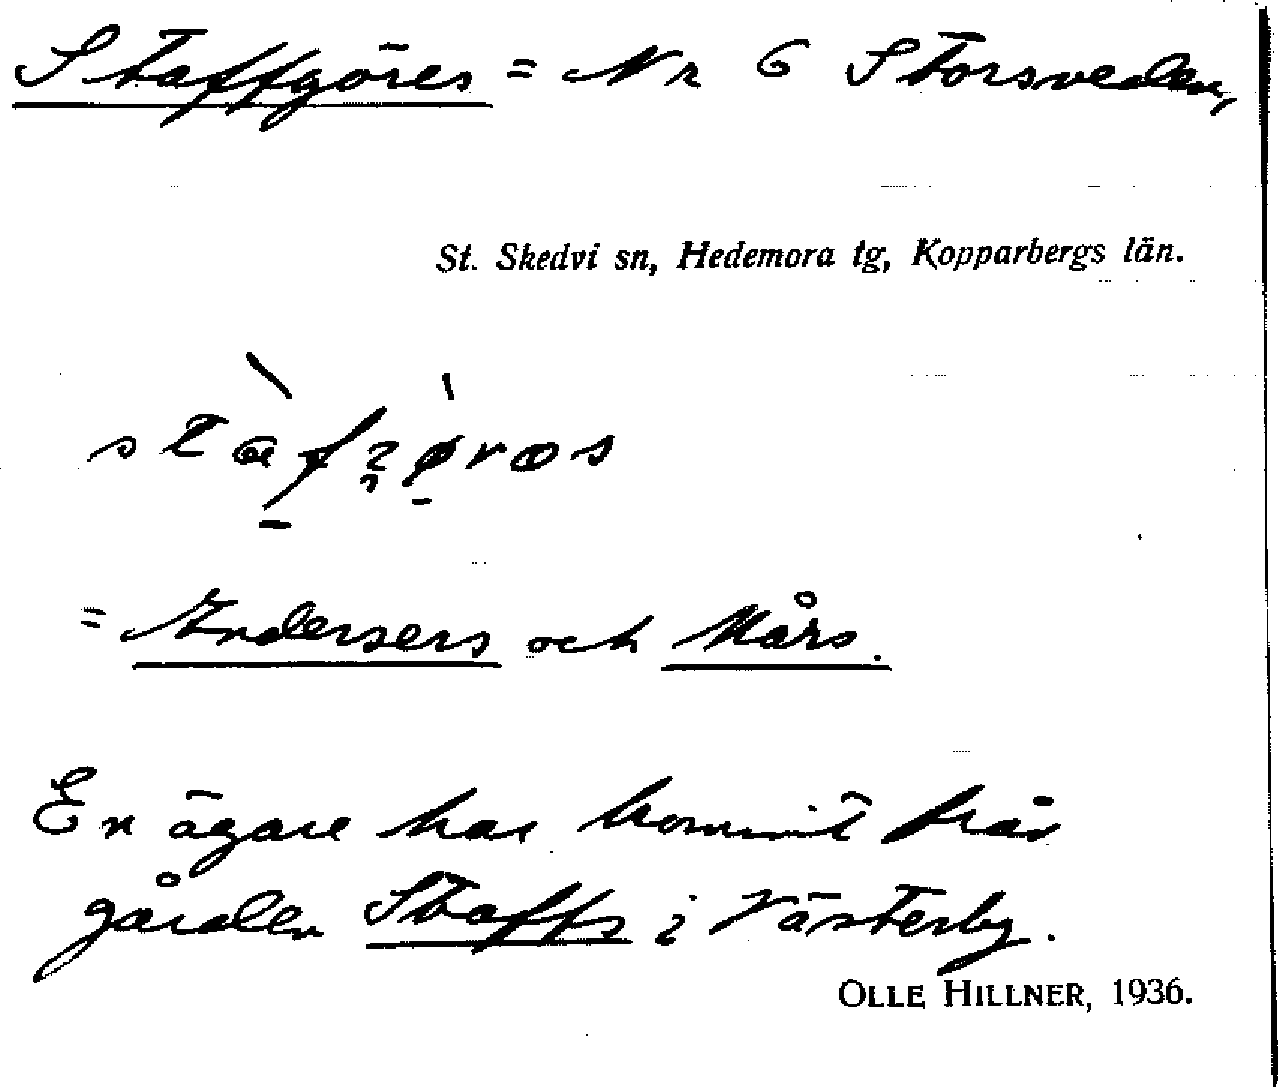 Staffgöres = Nr 6 Storsveden,
St. Skedvi sn, Hedemora tg, Kopparbergs län.
= Andersers och Mårs.
En ägare har kommit från
gården Staffs i Västerby.
OLLE HILLNER, 1936.